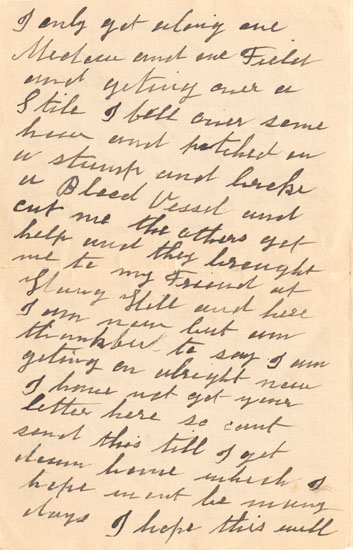 I only got along one
Medow and one Field
and geting over a
Stile I fell over some
how and pitched on
a stump and broke
a Blood Vessel and
cut me the others got
help and they brought
me to my Friend at
Hill and here
I am now but am
thankful to say I am
geting on alright now
I have not got your
letter here so cant
send this till I get
down home which I
hope wont be many
days I hope this will